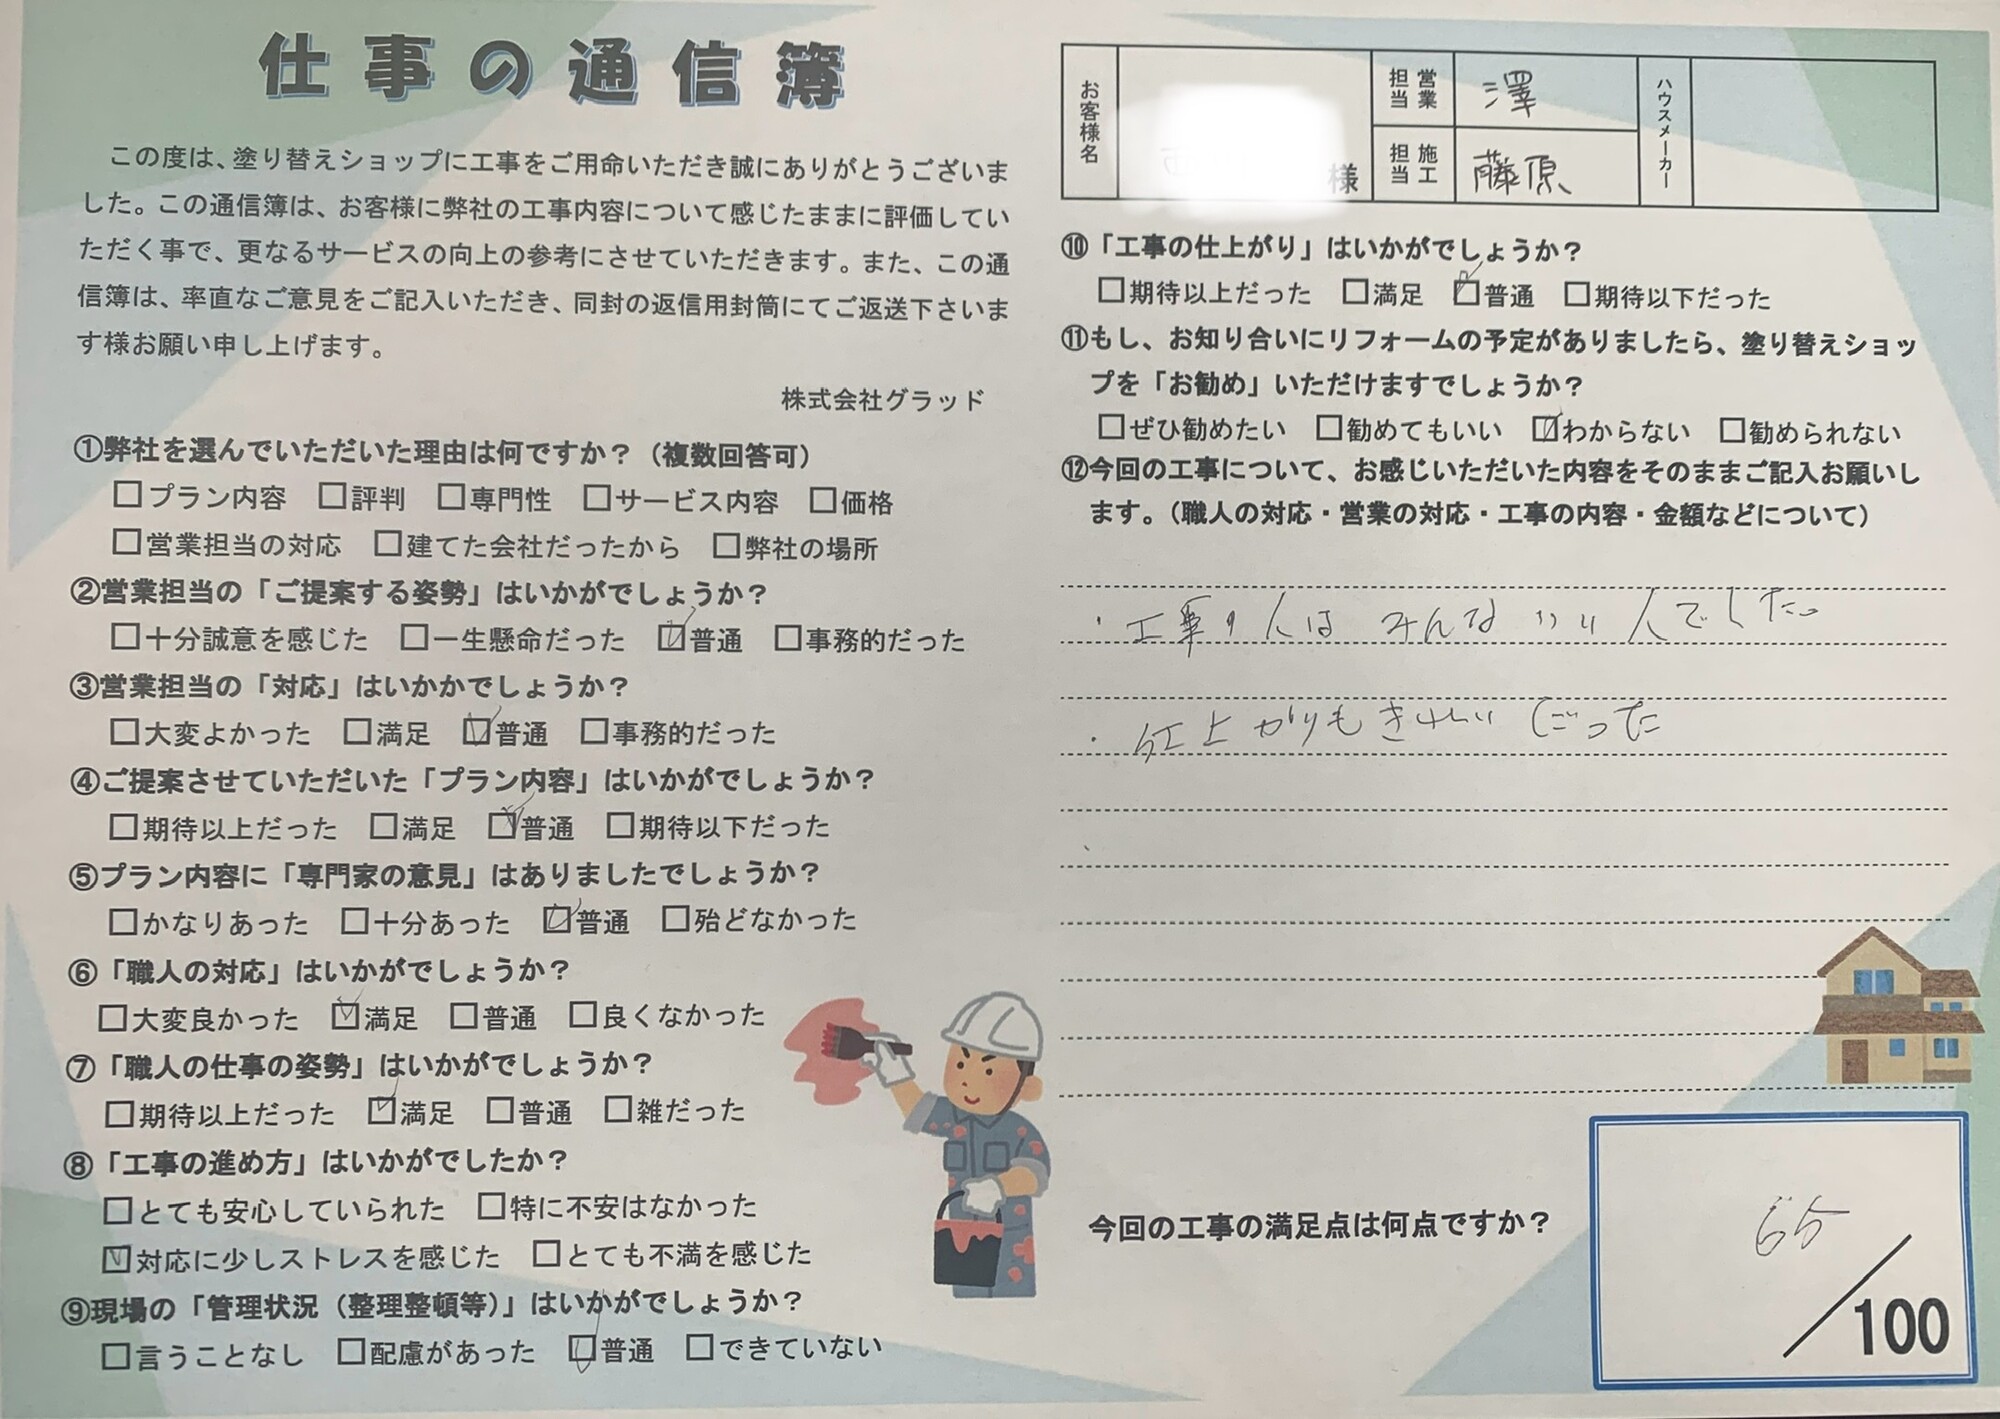 仕事の通信簿
この度は、塗り替えショップに工事をご用命いただき誠にありがとうございま
した。この通信簿は、お客様に弊社の工事内容について感じたままに評価してい
ただく事で、更なるサービスの向上の参考にさせていただきます。また、この通
信簿は、率直なご意見をご記入いただき、同封の返信用封筒にてご返送下さいま
す様お願い申し上げます。
株式会社グラッド
①弊社を選んでいただいた理由は何ですか？（複数回答可）
□プラン内容 □評判 □専門性 □サービス内容 □価格
□営業担当の対応 □建てた会社だったから □弊社の場所
②営業担当の「ご提案する姿勢」はいかがでしょうか？
□十分誠意を感じた □一生懸命だった ☑普通 □事務的だった
③営業担当の「対応」はいかかでしょうか？
□大変よかった □満足 ☑普通 □事務的だった
④ご提案させていただいた「プラン内容」はいかがでしょうか？
□期待以上だった □満足 ☑普通 □期待以下だった
⑤プラン内容に「専門家の意見」はありましたでしょうか？
□かなりあった □十分あった ☑普通 □殆どなかった
⑥「職人の対応」はいかがでしょうか？
□大変良かった ☑満足 □普通 □良くなかった
⑦「職人の仕事の姿勢」はいかがでしょうか？
□期待以上だった ☑満足 □普通 □雑だった
⑧「工事の進め方」はいかがでしたか？
□とても安心していられた □特に不安はなかった
☑対応に少しストレスを感じた □とても不満を感じた
⑨現場の「管理状況（整理整頓等）」はいかがでしょうか？
□言うことなし □配慮があった ☑普通 □できていない
お客様名 様 営業担当 澤 ハウスメーカー
施工担当 藤原
⑩「工事の仕上がり」はいかがでしょうか？
□期待以上だった □満足 ☑普通 □期待以下だった
⑪もし、お知り合いにリフォームの予定がありましたら、塗り替えショッ
プを「お勧め」いただけますでしょうか？
□ぜひ勧めたい □勧めてもいい ☑わからない □勧められない
⑫今回の工事について、お感じいただいた内容をそのままご記入お願いし
ます。（職人の対応・営業の対応・工事の内容・金額などについて）
・工事の人は みんな いい人でした。
・仕上がりもきれいだった
今回の工事の満足点は何点ですか？
65
/100